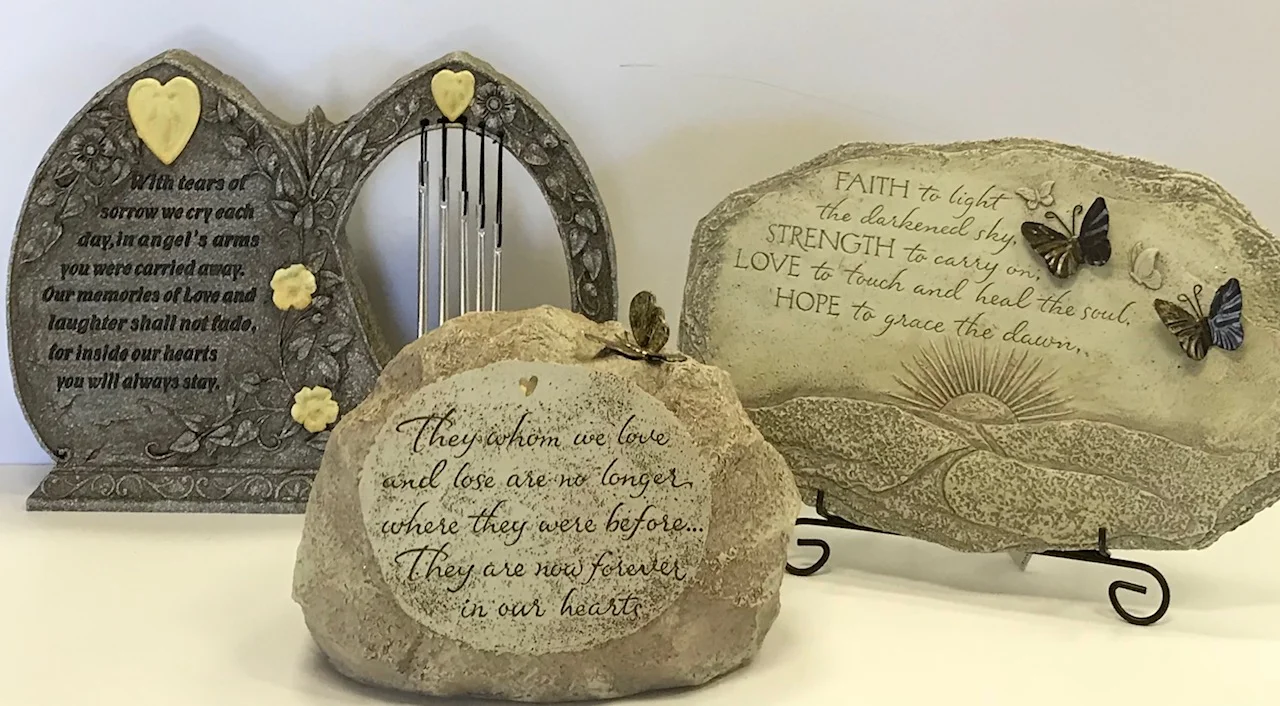 With tears of
sorrow we cry each
day, in angel's arms
you were carried away.
Our memories of Love and
laughter shall not fade,
for inside our hearts
you will always stay.
They whom we love
and lose are no longer
where they were before...
They are now forever
in our hearts
FAITH to light
the darkened sky.
STRENGTH to carry on;
LOVE to touch and heal the soul.
HOPE to grace the dawn.